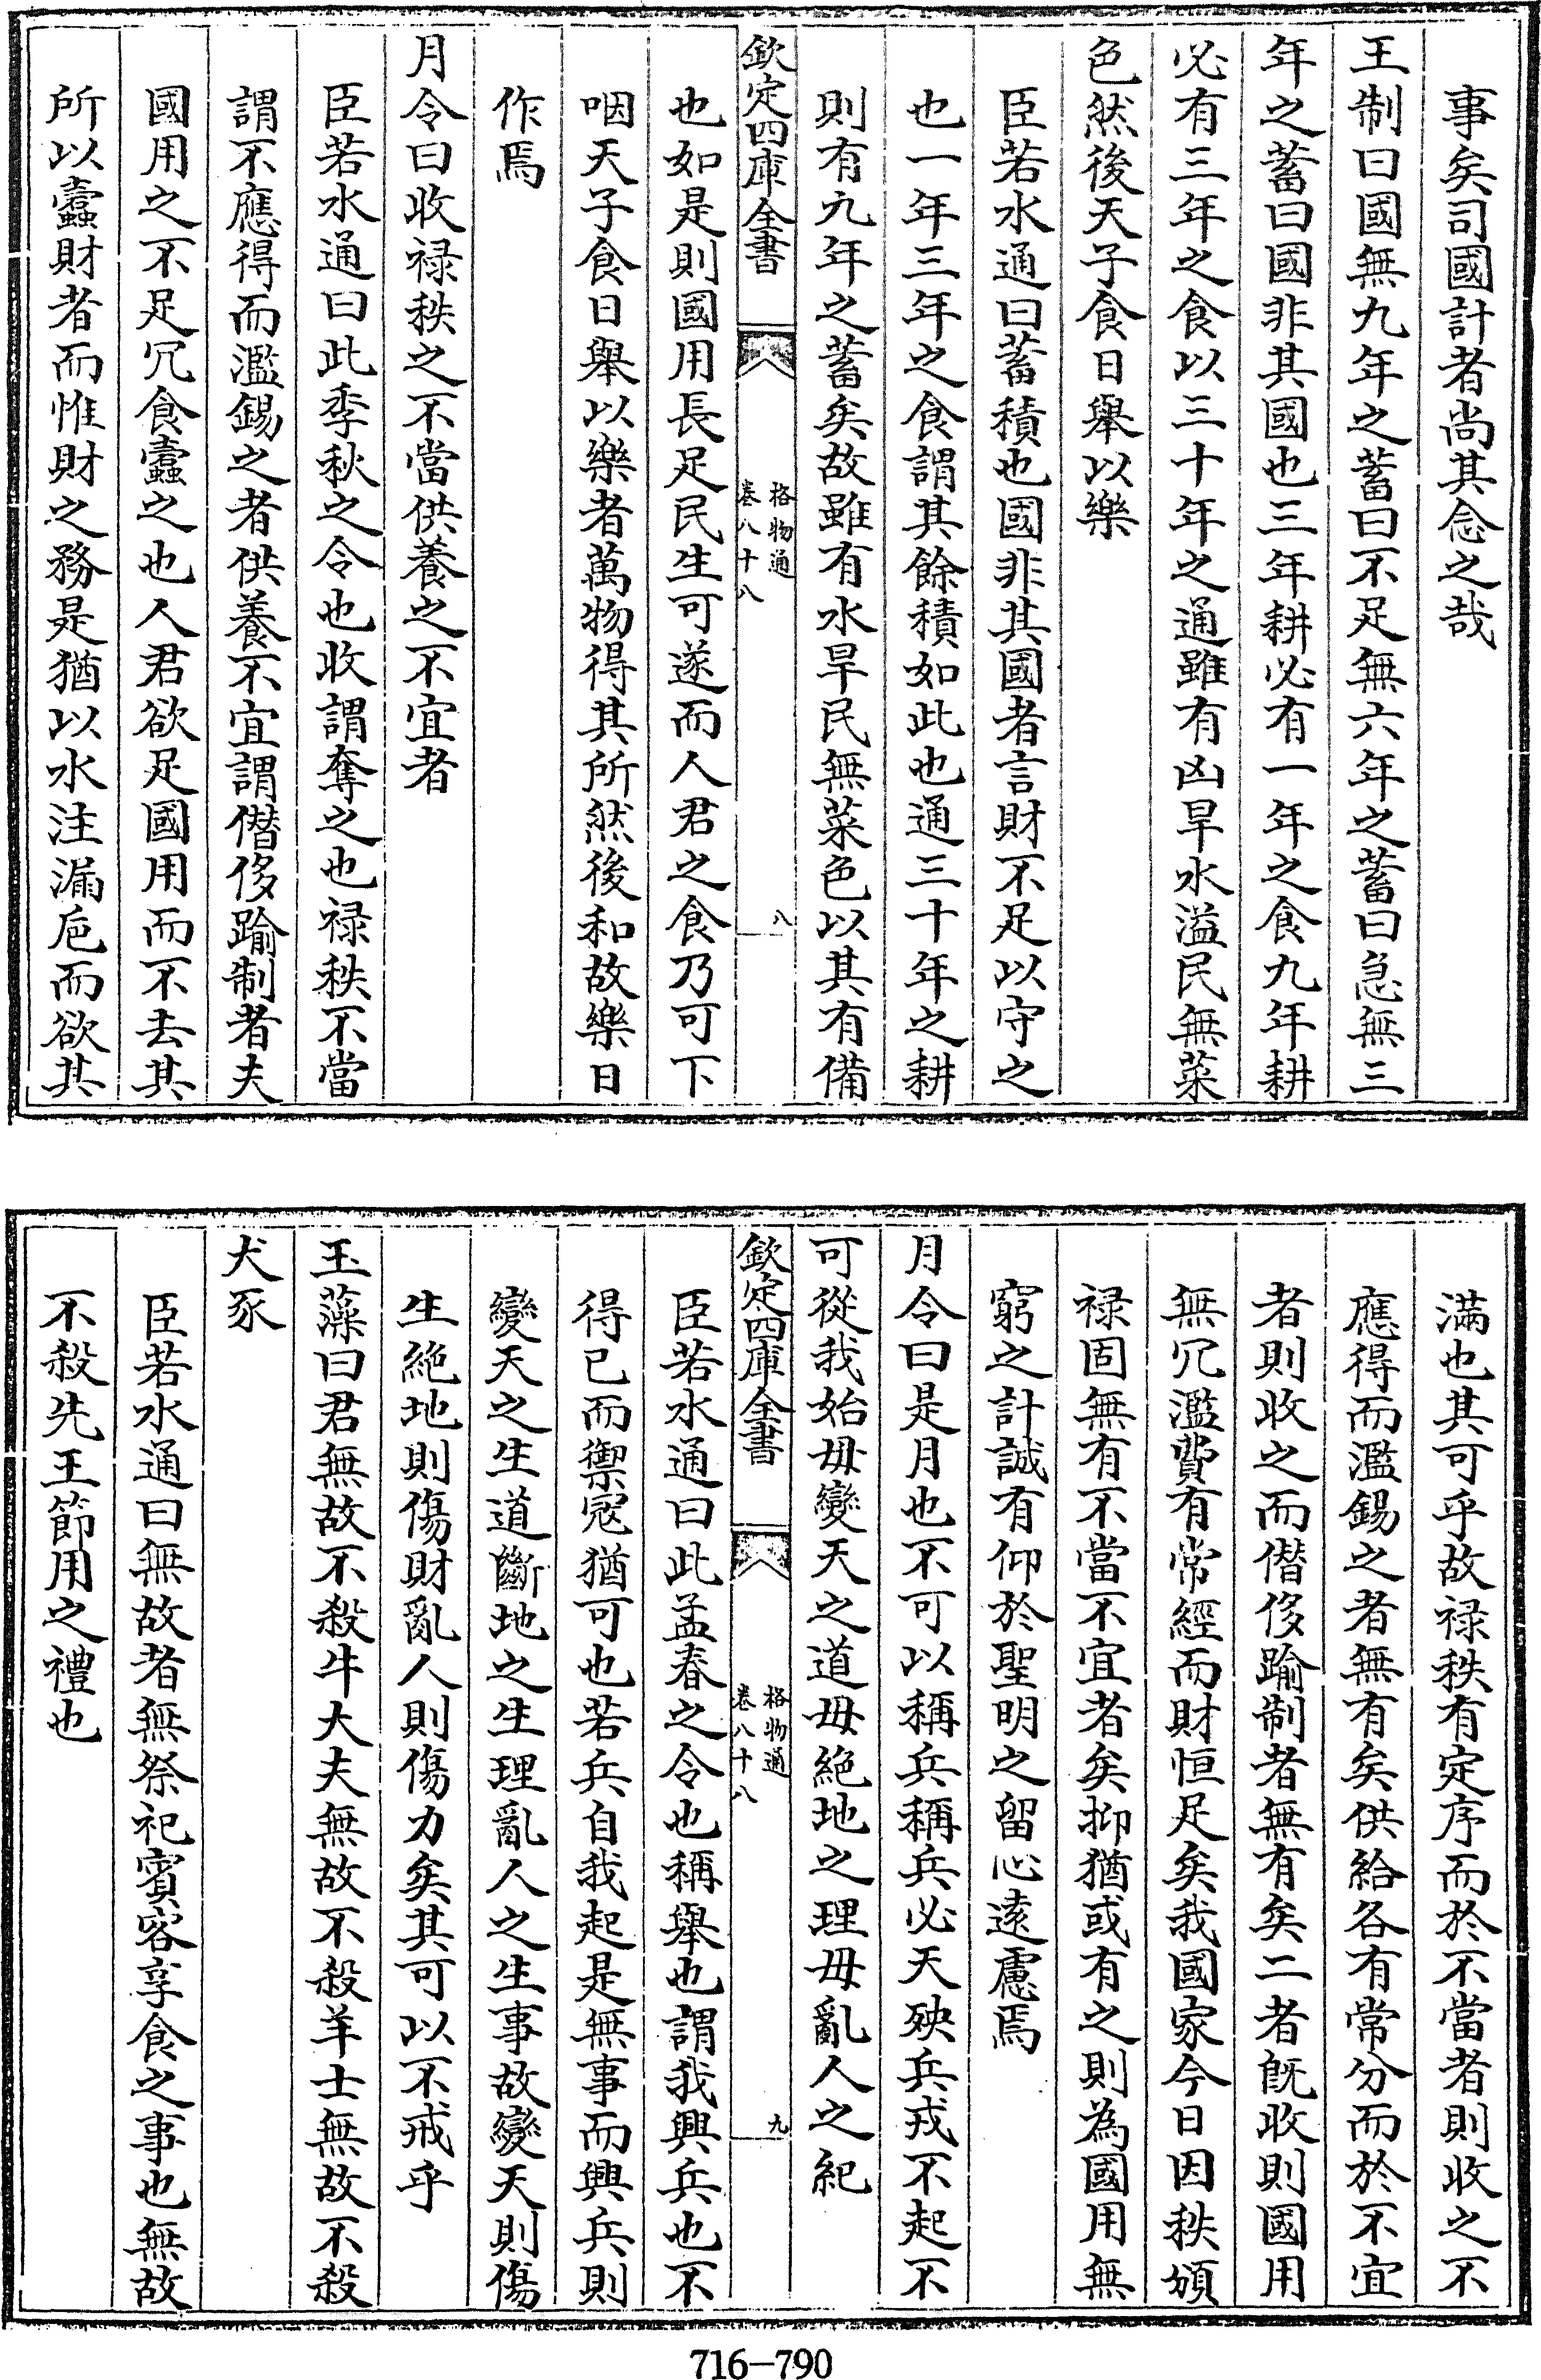 事矣司國計者尚其念之哉
王制曰國無九年之蓄曰不足無六年之蓄曰急無三
年之蓄曰國非其國也三年耕必有一年之食九年耕
必有三年之食以三十年之通雖有凶旱水溢民無菜
色然後天子食日舉以樂
臣若水通曰蓄積也國非其國者言財不足以守之
也一年三年之食謂其餘積如此也通三十年之耕
則有九年之蓄矣故雖有水旱民無菜色以其有備
欽定四庫全書
格物通
卷八十八
八
也如是則國用長足民生可遂而人君之食乃可下
咽天子食日舉以樂者萬物得其所然後和故樂日
作焉
月令曰收禄秩之不當供養之不宜者
臣若水通曰此季秋之令也收謂奪之也禄秩不當
謂不應得而濫錫之者供養不宜謂僭侈踰制者夫
國用之不足冗食蠹之也人君欲足國用而不去其
所以蠹財者而惟財之務是猶以水注漏巵而欲其
滿也其可乎故禄秩有定序而於不當者則收之不
應得而濫錫之者無有矣供給各有常分而於不宜
者則收之而僭侈踰制者無有矣二者旣收則國用
無冗濫費有常經而財恒足矣我國家今日因秩頒
禄固無有不當不宜者矣抑猶或有之則為國用無
窮之計誠有仰於聖明之留心逺慮焉
月令曰是月也不可以稱兵稱兵必天殃兵戎不起不
可從我始毋變天之道毋絶地之理毋亂人之紀
欽定四庫全書
格物通
卷八十八
九
臣若水通曰此孟春之令也稱舉也謂我興兵也不
得已而禦寇猶可也若兵自我起是無事而興兵則
變天之生道斷地之生理亂人之生事故變天則傷
生絶地則傷財亂人則傷力矣其可以不戒乎
玉藻曰君無故不殺牛大夫無故不殺羊士無故不殺
犬豕
臣若水通曰無故者無祭祀賓客享食之事也無故
不殺先王節用之禮也
716-790